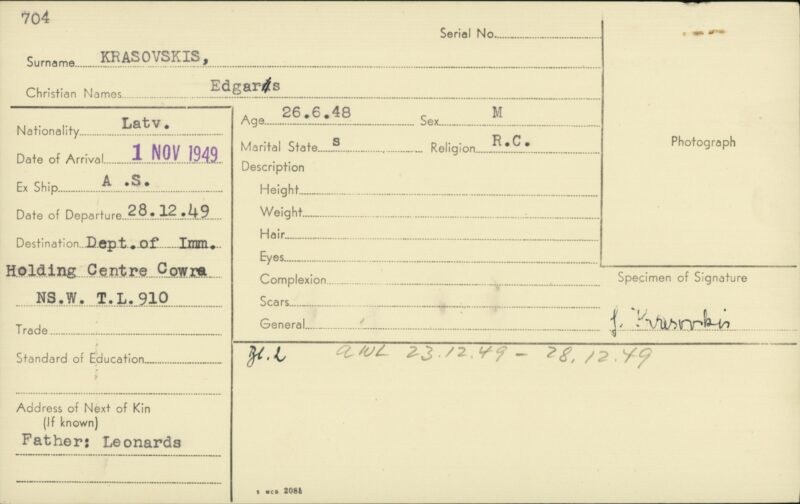 704
Serial No.
Surname KRASOVSKIS,
Christian Names Edgars
Nationality Latv.
Date of Arrival 1 NOV 1949
Ex Ship A .S.
Date of Departure 28.12.49
Destination Dept.of Imm.
Holding Centre Cowra
NS.W. T.L.910
Trade
Standard of Education
Address of Next of Kin
(If known)
Father: Leonards
Age 26.6.48 Sex M
Marital State s Religion R.C.
Description
Height
Weight
Hair
Eyes
Complexion
Scars
General
Photograph
Specimen of Signature
J. Krasovskis
AWL 23.12.49 - 28.12.49